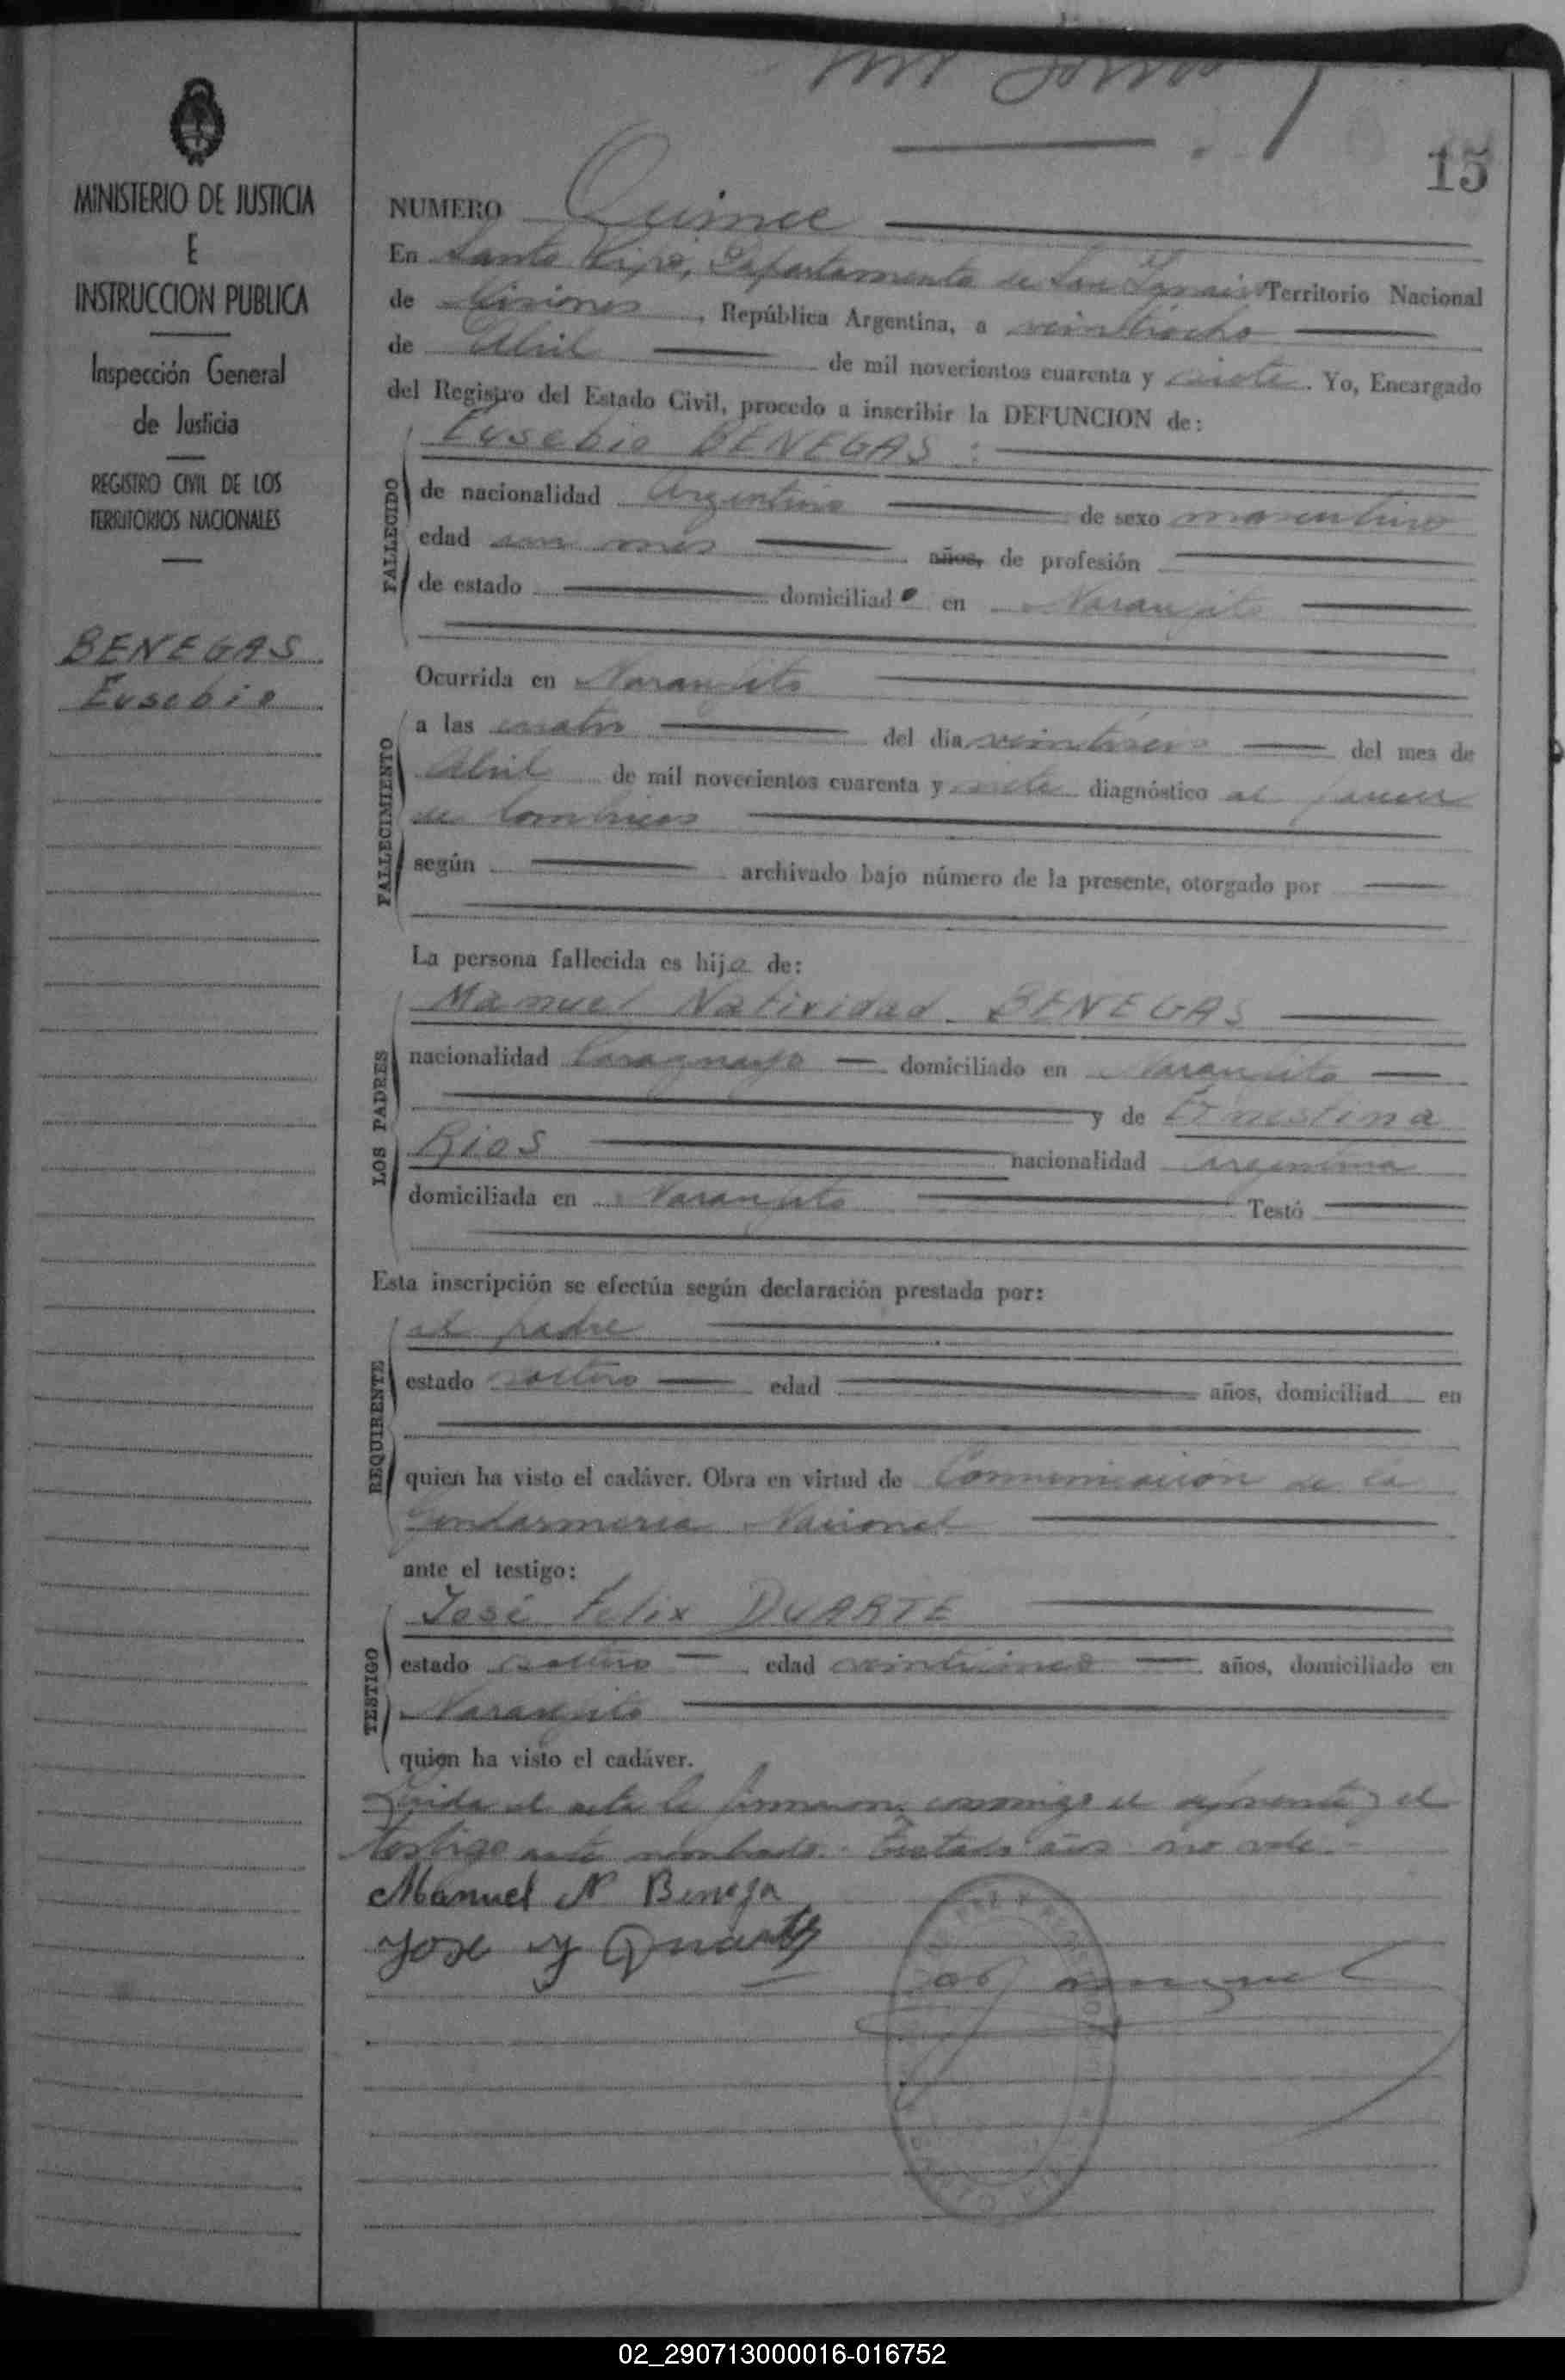 15
MINISTERIO DE JUSTICIA
E
INSTRUCCION PUBLICA
Inspección General
de Justicia
REGISTRO CIVIL DE LOS
TERRITORIOS NACIONALES
BENEGAS
Eusebio
NUMERO Quince
En Santo Pipó, Departamento de San Ignacio Territorio Nacional
de Misiones, República Argentina, a veintiocho
de Abril de mil novecientos cuarenta y siete. Yo, Encargado
del Registro del Estado Civil, procedo a inscribir la DEFUNCION de:
Eusebio BENEGAS:
FALLECIDO
de nacionalidad Argentino de sexo masculino
edad un mes años, de profesión
de estado domiciliado en Naranjito
Ocurrida en Naranjito
FALLECIMIENTO
a las cuatro del día veintiseis del mes de
Abril de mil novecientos cuarenta y siete diagnóstico al parecer
de lombrices
según archivado bajo número de la presente, otorgado por
La persona fallecida es hijo de:
LOS PADRES
Manuel Natividad BENEGAS
nacionalidad Paraguayo domiciliado en Naranjito
y de Ernestina
Rios nacionalidad argentina
domiciliada en Naranjito Testó
Esta inscripción se efectúa según declaración prestada por:
REQUIRENTE
el padre
estado soltero edad años, domiciliad en
quien ha visto el cadáver. Obra en virtud de Comunicación de la
Gendarmeria Nacional
ante el testigo:
TESTIGO
José Felix DUARTE
estado soltero edad veinticinco años, domiciliado en
Naranjito
quien ha visto el cadáver.
Leida el acta la firmaron conmigo el exponente y el
testigo ante nombrado. Testado: años no vale.
Manuel N Benega
Jose y Duarte
02_290713000016-016752